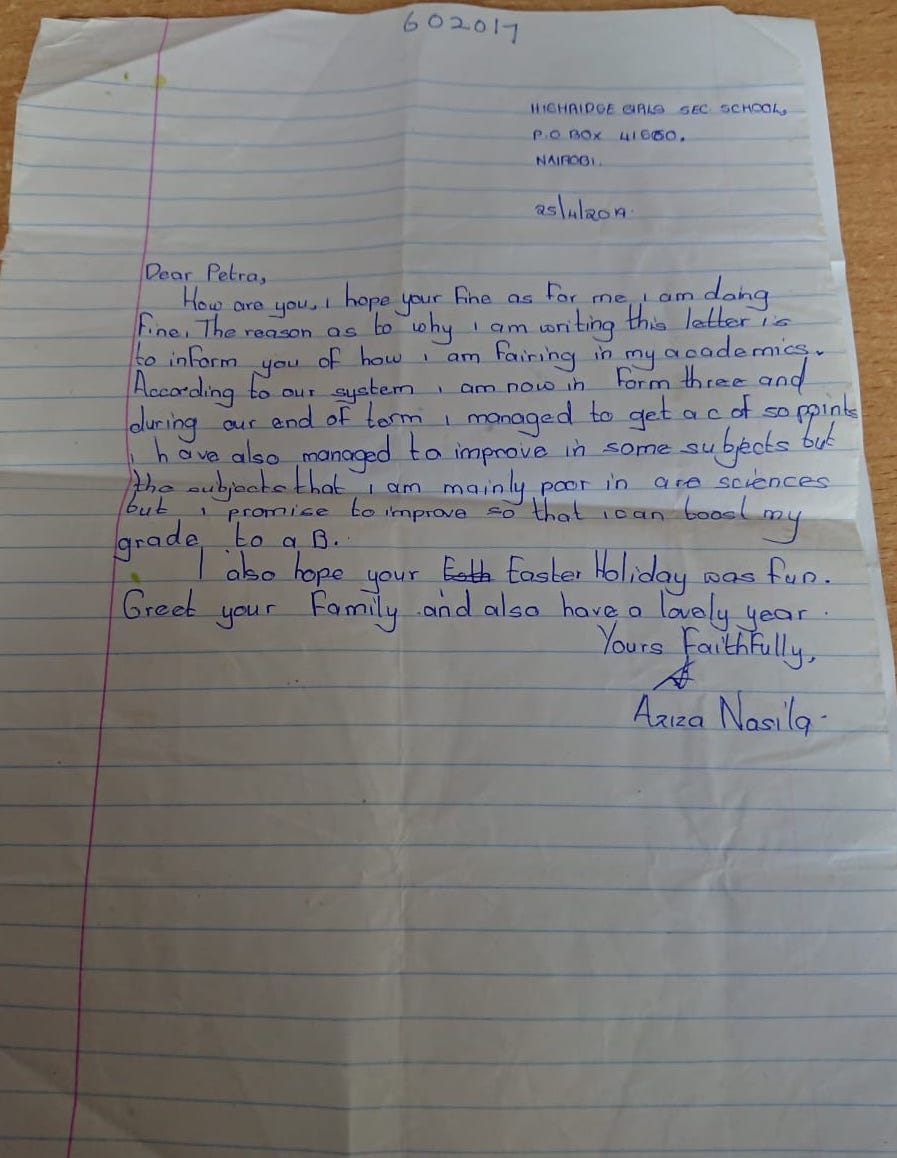 602017
HIGHRIDGE GIRLS SEC. SCHOOL,
P.O BOX
NAIROBI.
Dear Petra,
How are you, i hope your fine as for me i am doing
fine. The reason as to why i am writing this letter is
to inform you of how i am fairing in my academics.
According to our system i am now in form three and
during our end of term i managed to get a c of 50 points
i have also managed to improve in some subjects but
the subjects that i am mainly poor in are sciences
but i promise to improve so that i can boost my
grade to a B.
I also hope your Easter Holiday was fun.
Greet your Family and also have a lovely year.
Yours Faithfully,
Aziza Nasila.